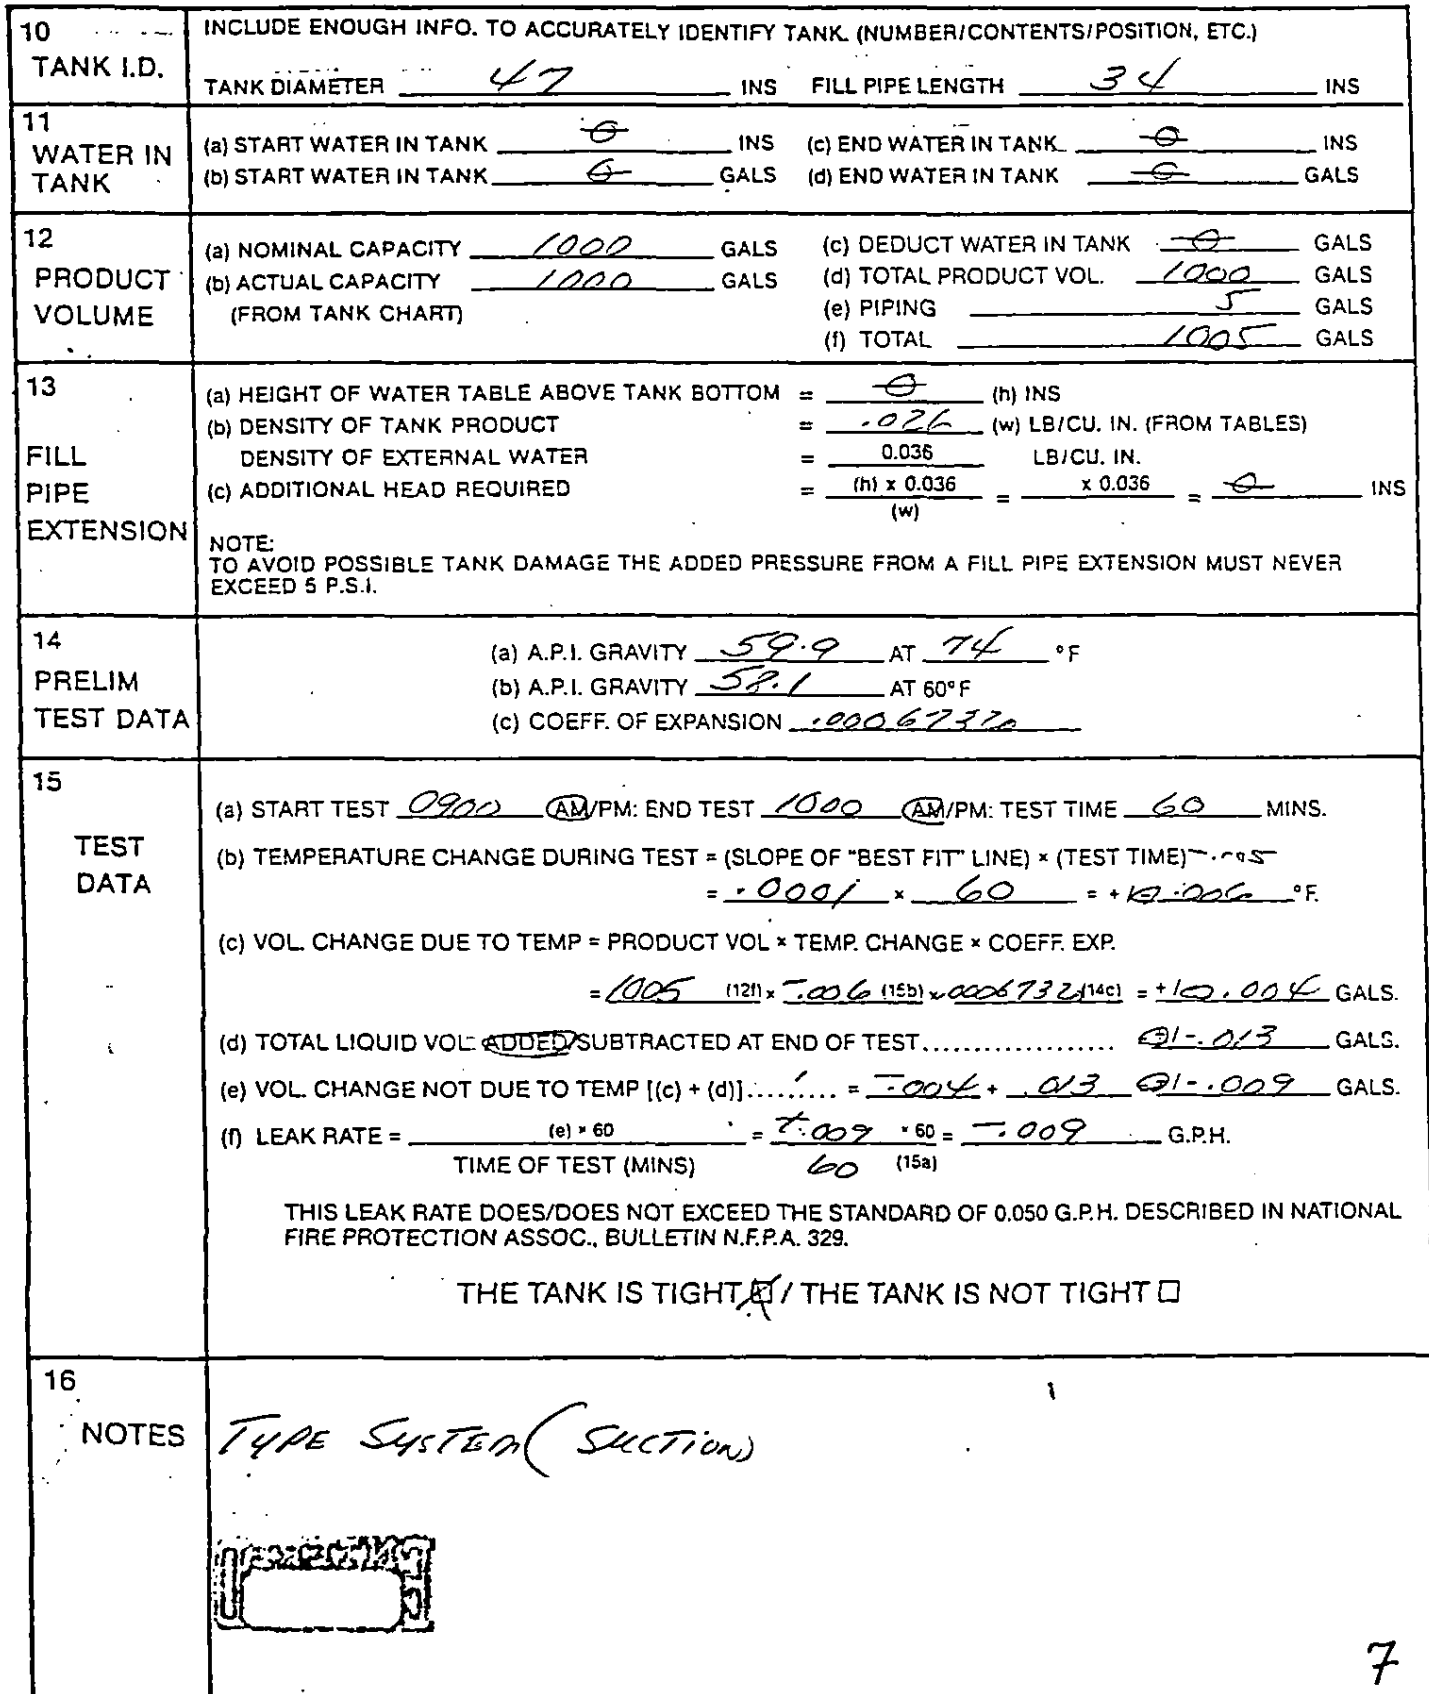 10
TANK I.D.
INCLUDE ENOUGH INFO. TO ACCURATELY IDENTIFY TANK. (NUMBER/CONTENTS/POSITION, ETC.)
TANK DIAMETER 47 INS FILL PIPE LENGTH 34 INS
11
WATER IN
TANK
(a) START WATER IN TANK 0 INS (c) END WATER IN TANK 0 INS
(b) START WATER IN TANK 0 GALS (d) END WATER IN TANK 0 GALS
12
PRODUCT
VOLUME
(a) NOMINAL CAPACITY 1000 GALS (c) DEDUCT WATER IN TANK 0 GALS
(b) ACTUAL CAPACITY 1000 GALS (d) TOTAL PRODUCT VOL. 1000 GALS
(FROM TANK CHART) (e) PIPING 5 GALS
(f) TOTAL 1005 GALS
13
FILL
PIPE
EXTENSION
(a) HEIGHT OF WATER TABLE ABOVE TANK BOTTOM = 0 (h) INS
(b) DENSITY OF TANK PRODUCT = .026 (w) LB/CU. IN. (FROM TABLES)
DENSITY OF EXTERNAL WATER = 0.036 LB/CU. IN.
(c) ADDITIONAL HEAD REQUIRED = (h) x 0.036 = x 0.036 = 0 INS
(w)
NOTE:
TO AVOID POSSIBLE TANK DAMAGE THE ADDED PRESSURE FROM A FILL PIPE EXTENSION MUST NEVER
EXCEED 5 P.S.I.
14
PRELIM
TEST DATA
(a) A.P.I. GRAVITY 59.9 AT 74 °F
(b) A.P.I. GRAVITY 58.1 AT 60°F
(c) COEFF. OF EXPANSION .0006732
15
TEST
DATA
(a) START TEST 0900 AM/PM: END TEST 1000 AM/PM: TEST TIME 60 MINS.
(b) TEMPERATURE CHANGE DURING TEST = (SLOPE OF "BEST FIT" LINE) × (TEST TIME)
= .0001 × 60 = +/- .006 °F.
(c) VOL. CHANGE DUE TO TEMP = PRODUCT VOL × TEMP. CHANGE × COEFF. EXP.
= 1005 (12f) × -.006 (15b) × .0006732 (14c) = +/- .004 GALS.
(d) TOTAL LIQUID VOL. ADDED/SUBTRACTED AT END OF TEST................... +/- .013 GALS.
(e) VOL. CHANGE NOT DUE TO TEMP [(c) + (d)]......... = -.004 + .013 +/- .009 GALS.
(f) LEAK RATE = (e) × 60 = -.009 × 60 = -.009 G.P.H.
TIME OF TEST (MINS) 60 (15a)
THIS LEAK RATE DOES/DOES NOT EXCEED THE STANDARD OF 0.050 G.P.H. DESCRIBED IN NATIONAL
FIRE PROTECTION ASSOC., BULLETIN N.F.P.A. 329.
THE TANK IS TIGHT ☒ / THE TANK IS NOT TIGHT ☐
16
NOTES
TYPE SYSTEM (SUCTION)
7